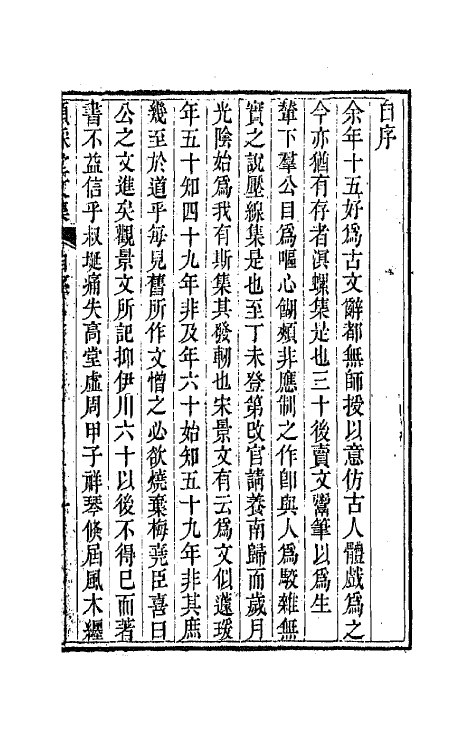 自序
余年十五好爲古文辭都無師授以意仿古人體戲爲之
今亦猶有存者溟螺集是也三十後賣文鬻筆以爲生
輦下羣公目爲嘔心餬頰非應制之作卽與人爲駁雜無
實之說壓線集是也至丁未登第改官請養南歸而歲月
光陰始爲我有斯集其發軔也宋景文有云爲文似蘧瑗
年五十知四十九年非及年六十始知五十九年非其庶
幾至於道乎每見舊所作文憎之必欲燒棄梅堯臣喜曰
公之文進矣觀景文所記抑伊川六十以後不得已而著
書不益信乎叔珽痛失高堂虛周甲子祥琴倏屆風木纏